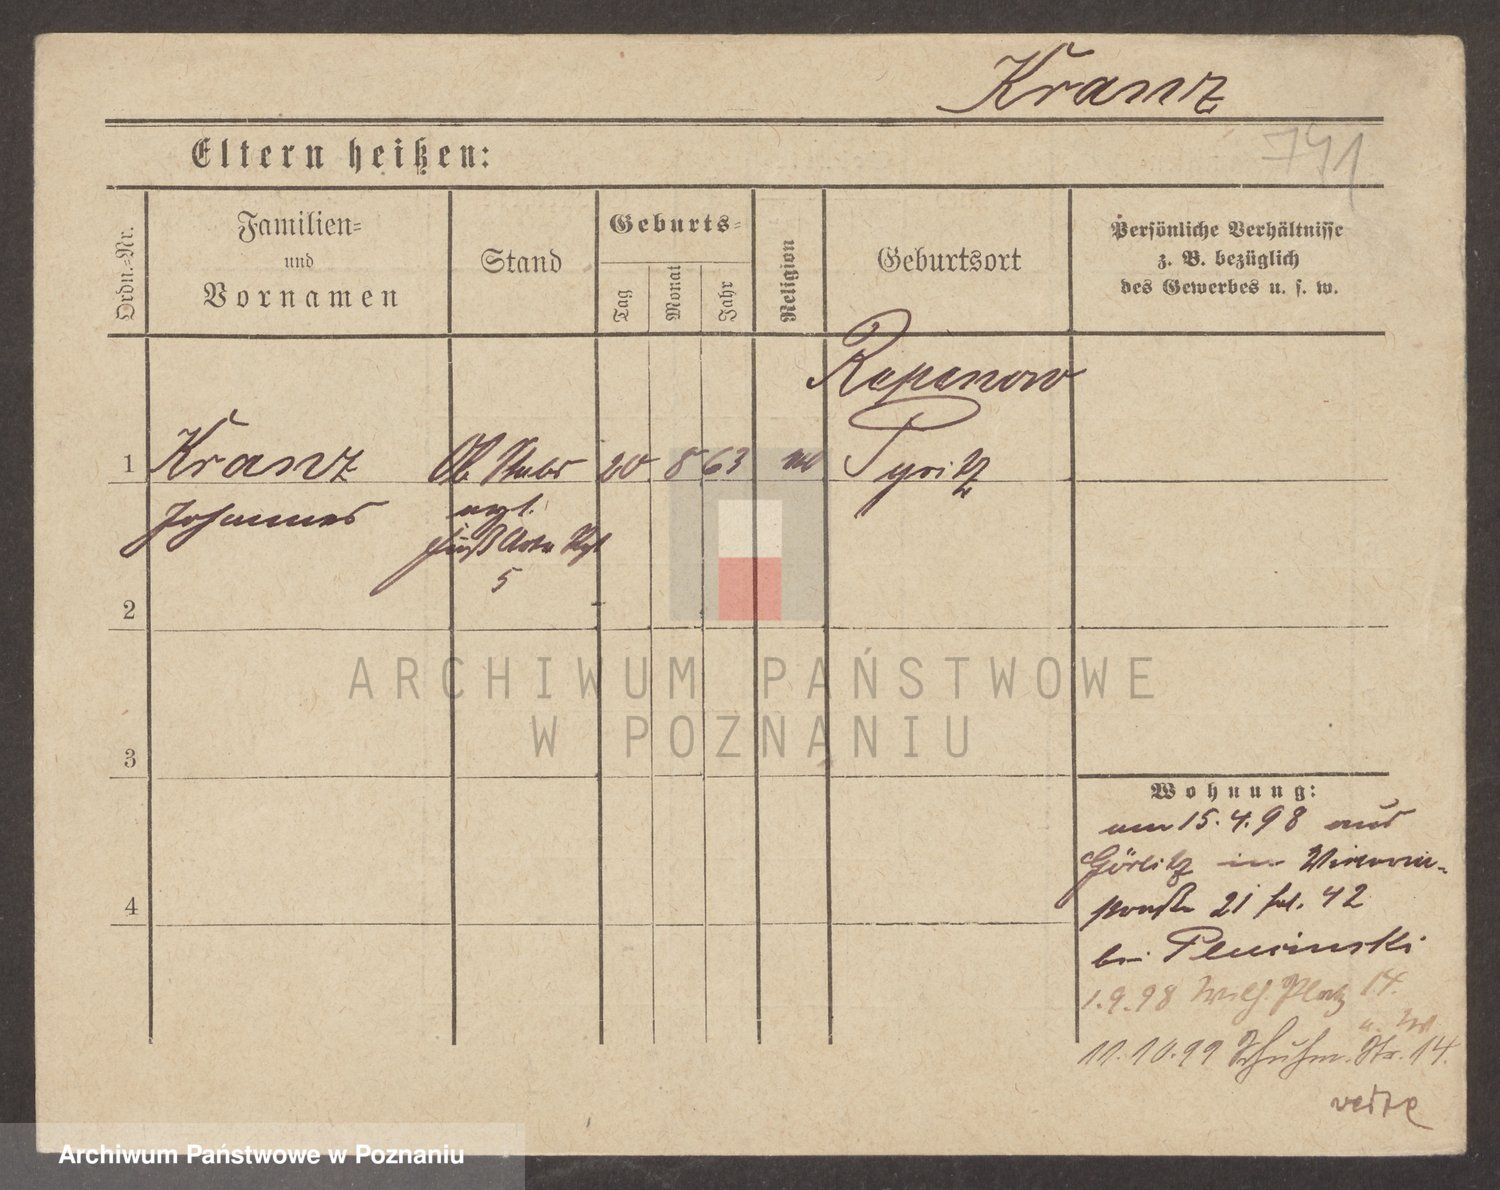 Kranz
791
Eltern heißen:
Ordn.-Nr.
Familien-
und
Vornamen
Stand
Geburts-
Tag
Monat
Jahr
Religion
Geburtsort
Persönliche Verhältnisse
z. B. bezüglich
des Gewerbes u. s. w.
1
Kranz
Johannes
Ob Stabs
5
20
8
63
Repenow
Pyritz
2
3
4
ARCHIWUM PAŃSTWOWE
W POZNANIU
Wohnung:
am 15.4.98 aus
Görlitz in
straße 21 42
bei Plucinski
1.9.98 Wilh. Platz 14.
11.10.99 Schuhm. Str. 14.
Archiwum Państwowe w Poznaniu